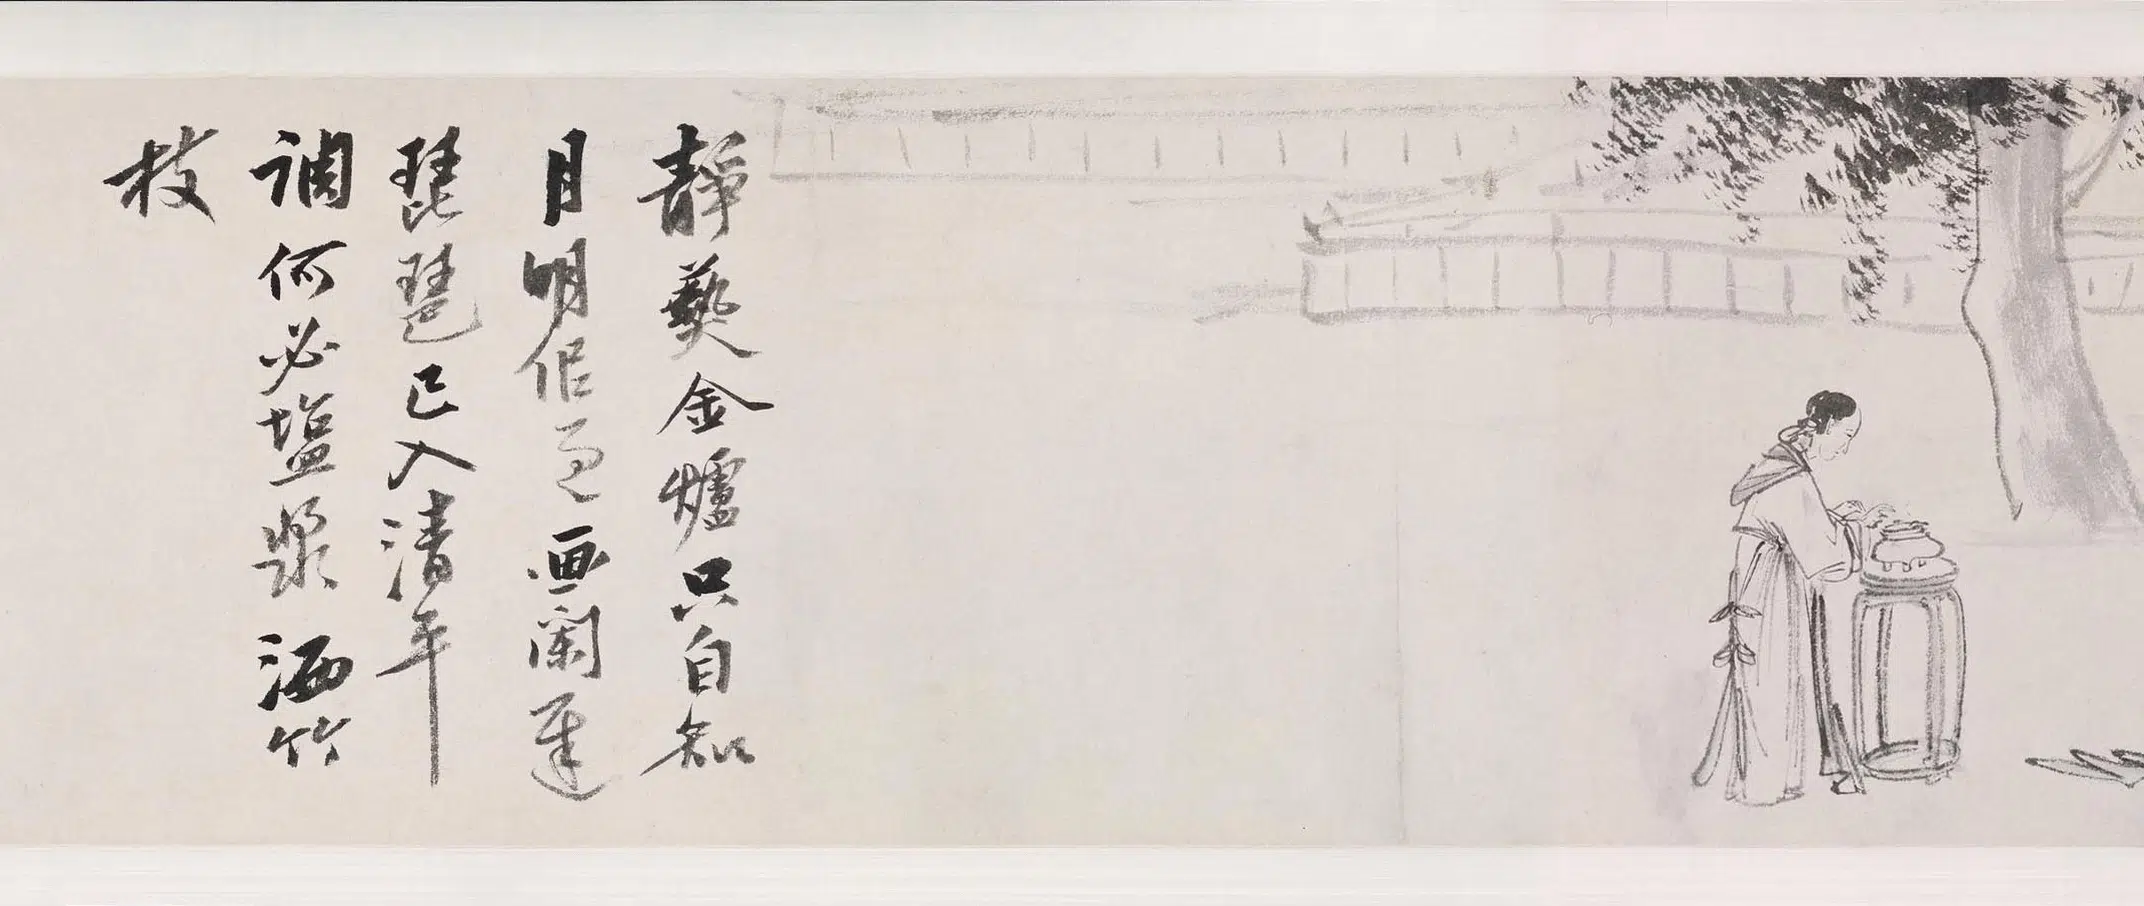 靜爇金爐只自知
月明画闌遲
琵琶已入清平
調何必塩漿洒竹
枝